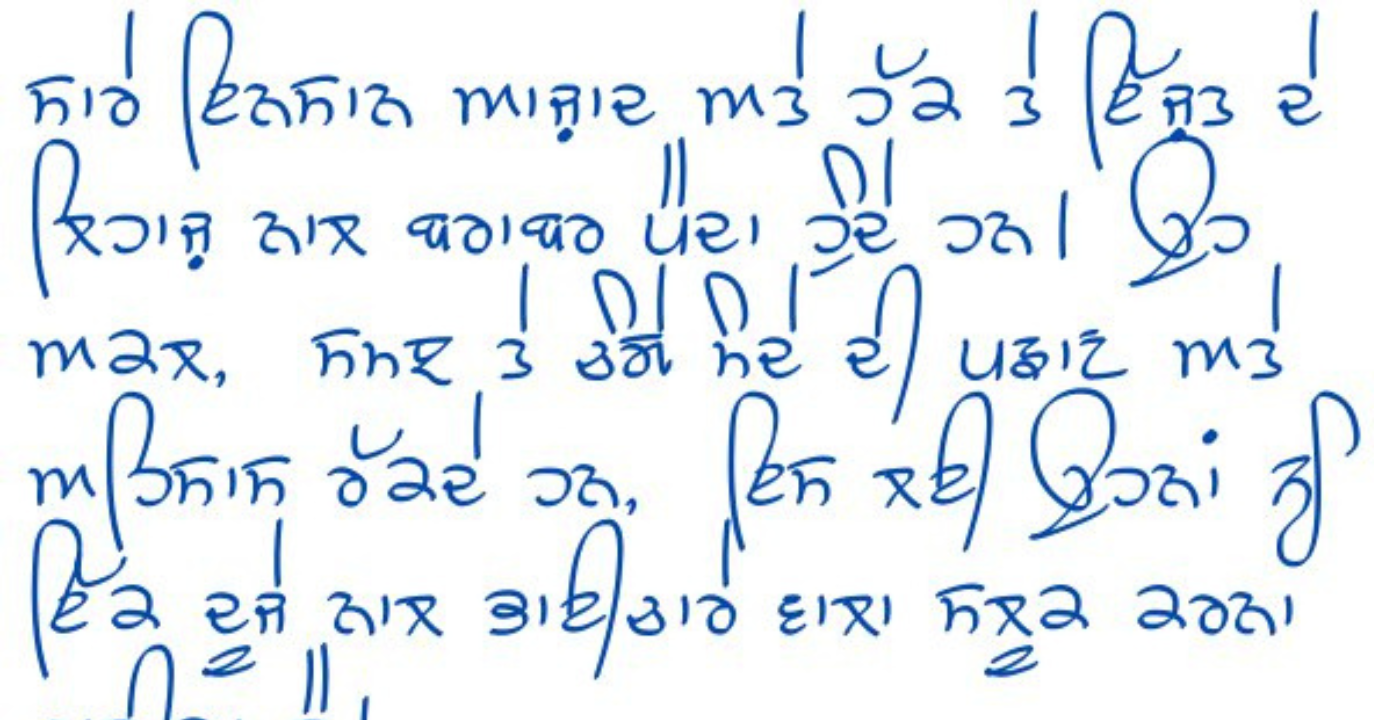 ਸਾਰੇ ਇਨਸਾਨ ਆਜ਼ਾਦ ਅਤੇ ਹੱਕ ਤੇ ਇੱਜ਼ਤ ਦੇ
ਲਿਹਾਜ਼ ਨਾਲ ਬਰਾਬਰ ਪੈਦਾ ਹੁੰਦੇ ਹਨ। ਉਹ
ਅਕਲ, ਸਮਝ ਤੇ ਚੰਗੇ ਮੰਦੇ ਦੀ ਪਛਾਣ ਅਤੇ
ਅਹਿਸਾਸ ਰੱਕਦੇ ਹਨ, ਇਸ ਲਈ ਉਹਨਾਂ ਨੂੰ
ਇੱਕ ਦੂਜੇ ਨਾਲ ਭਾਈਚਾਰੇ ਵਾਲਾ ਸਲੂਕ ਕਰਨਾ